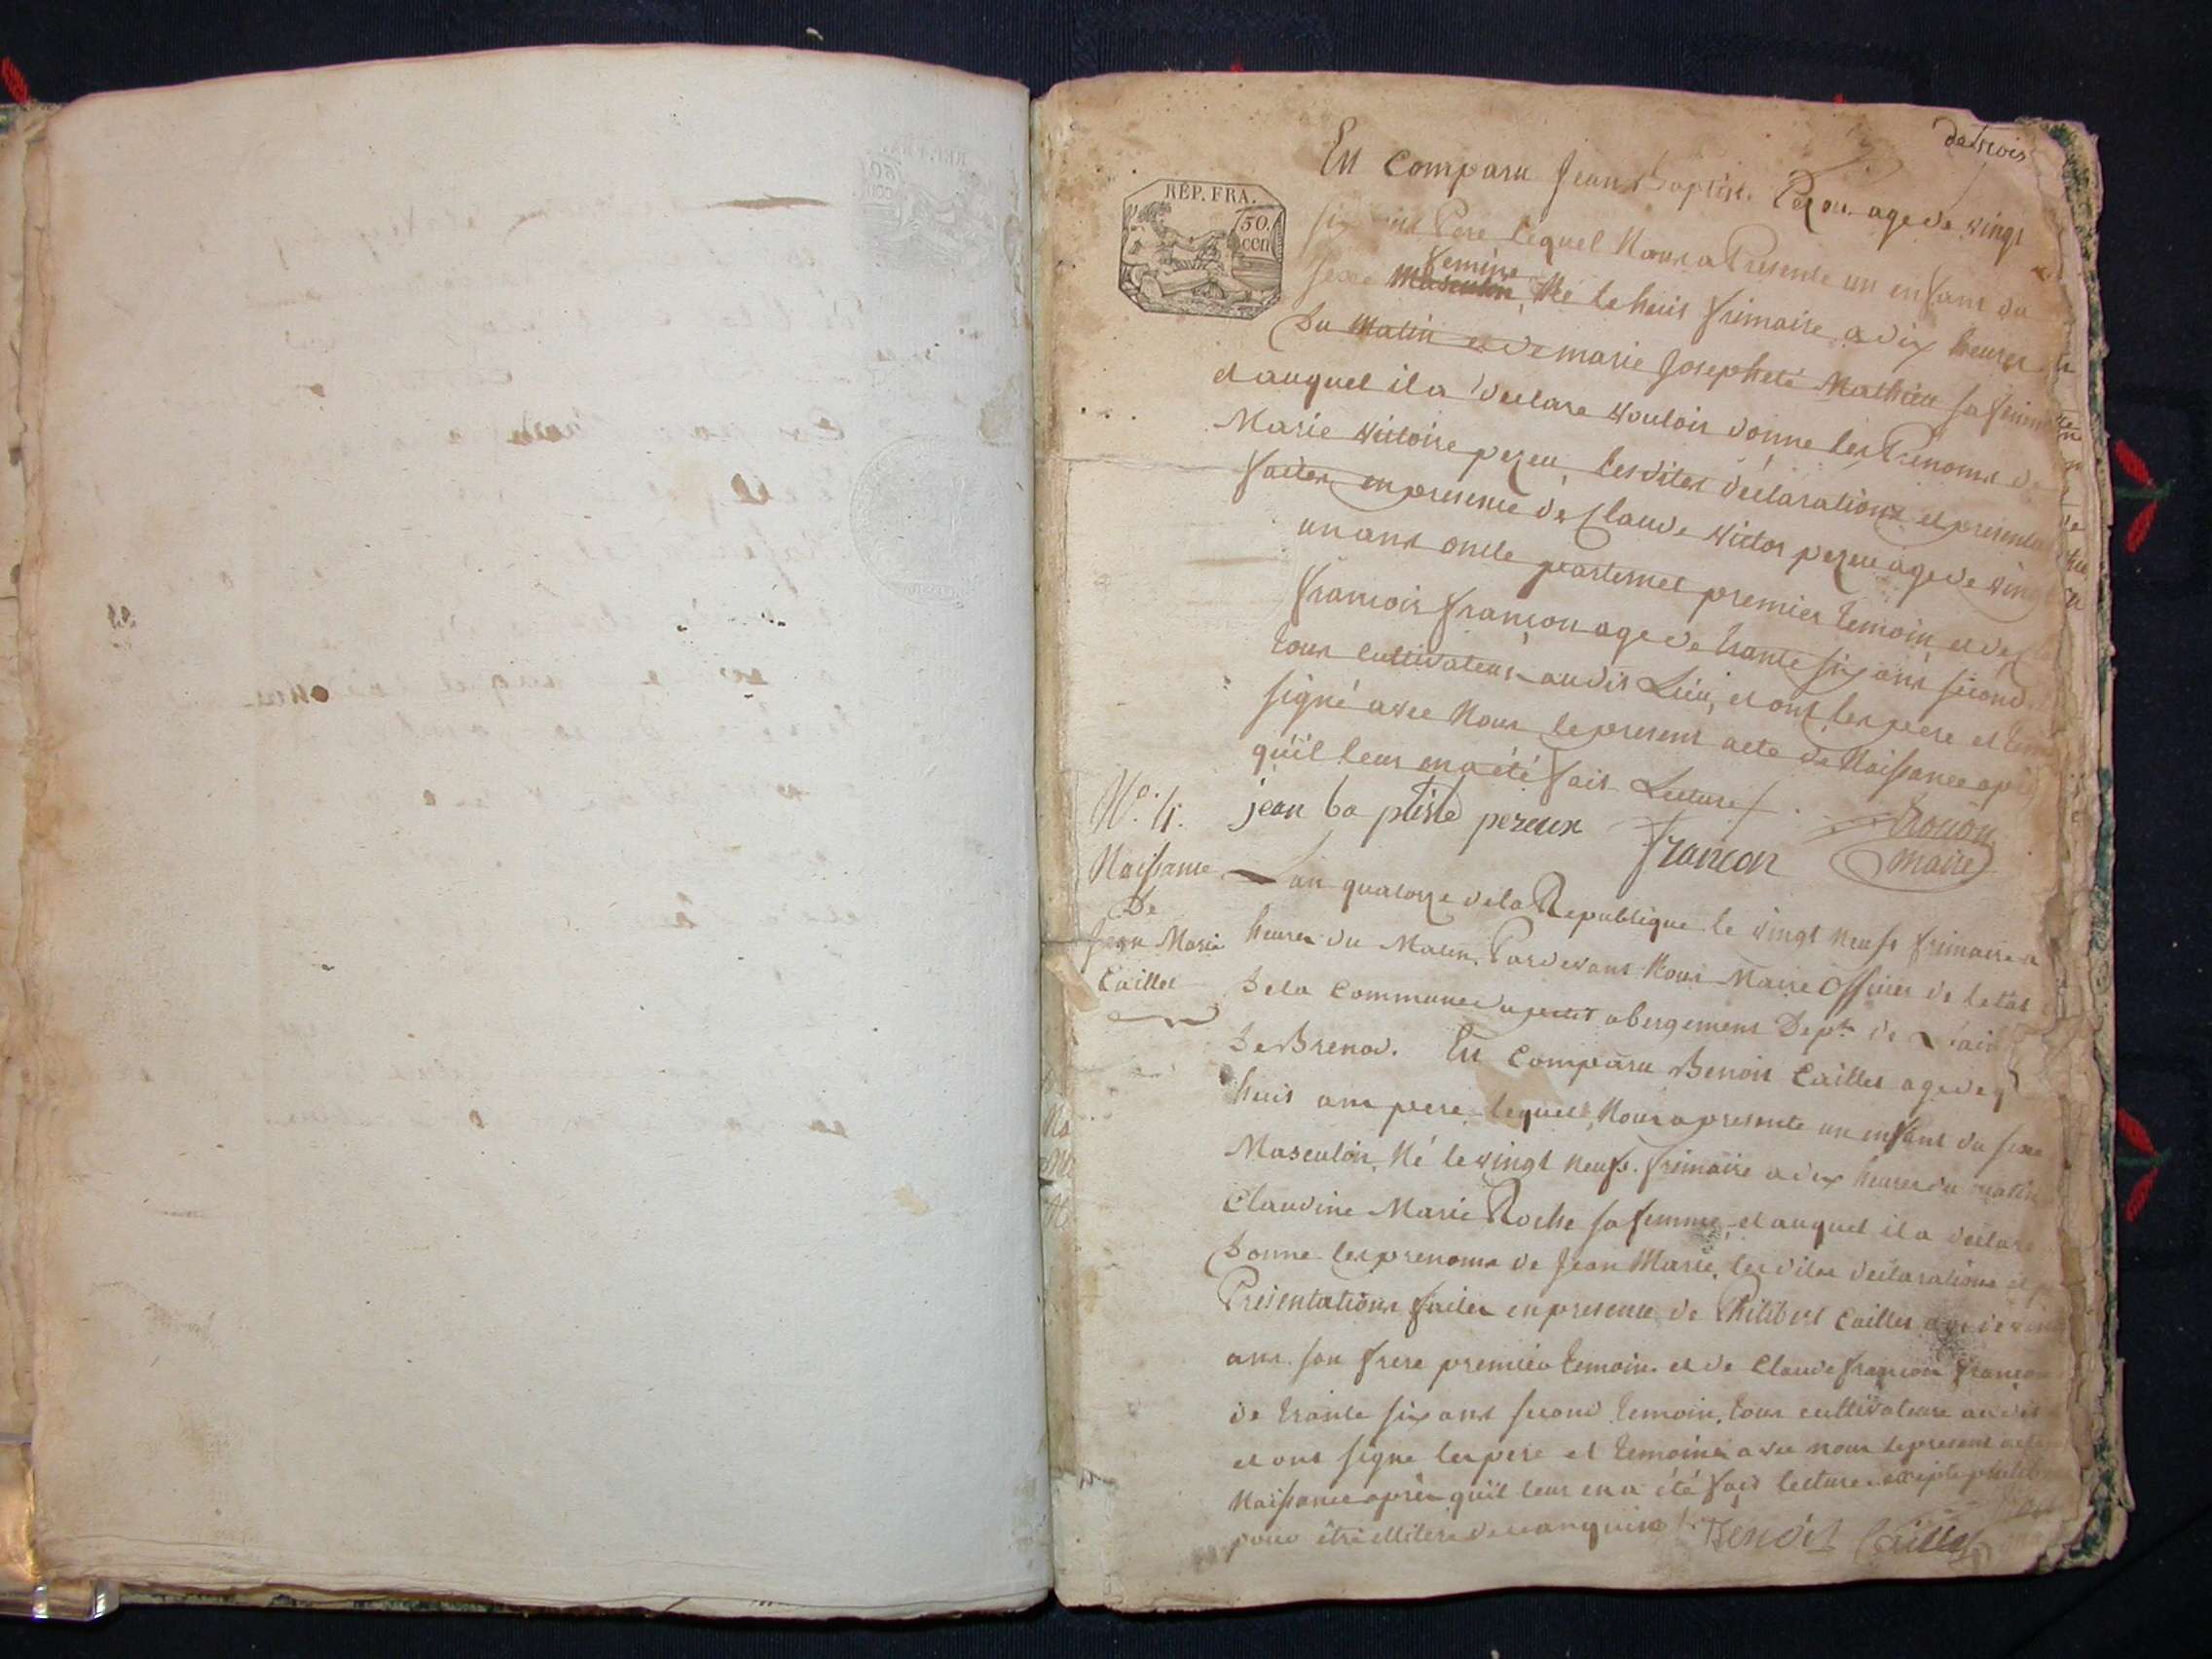 de trois
RÉP. FRA.
50.
cen
Est Comparu Jean Baptiste Pezeu age de vingt
six ans Pere, lequel Nous a Presente un enfant du
femine
sexe Masculin, Né le huit frimaire a dix heures
Du Matin et de marie Josephete Mathieu sa femme
et auquel il a declare vouloir donne les Prenoms de
Marie Victoire pezeu, les dites declarations et presenta
faites en presence de Claude Victor pezeu age de vingt
un ans oncle parternel premier temoin et de
francois françon age de trante six ans second
tous cultivateurs audit Lieu, et ont les pere et
signé avec Nous le present acte de Naissance apr
qu'il leur en a été fait Lecture
jean ba ptiste pezeux
francon
maire
N.º 4.
Naissance
De
Jean Marie
Caillet
L an quatorze de la Republique le vingt neuf frimaire a
heures du Matin, Pardevant Nous Maire Officier de letat
De la Commune du petit abergement Dept. de Lain
De Brenod. Est Comparu Benoit Caillet age de q
huit ans pere, lequel Nous a presente un enfant du sexe
Masculin, Né le vingt neuf frimaire a dix heures du matin
Claudine Marie Roche sa femme, et auquel il a declare
Donne les prenoms de Jean Marie, les dites declarations et
Presentations faites en presence de Philibert Caillet age de
ans son frere premier temoin et de Claude françois françon
de trante six ans second temoin, tous cultivateurs audit
et ont signe les pere et temoins avec nous le present acte
Naissance après qu'il leur en a été fait lecture excepte philib
pour être illitere de ce enquis
Benoit Caillet